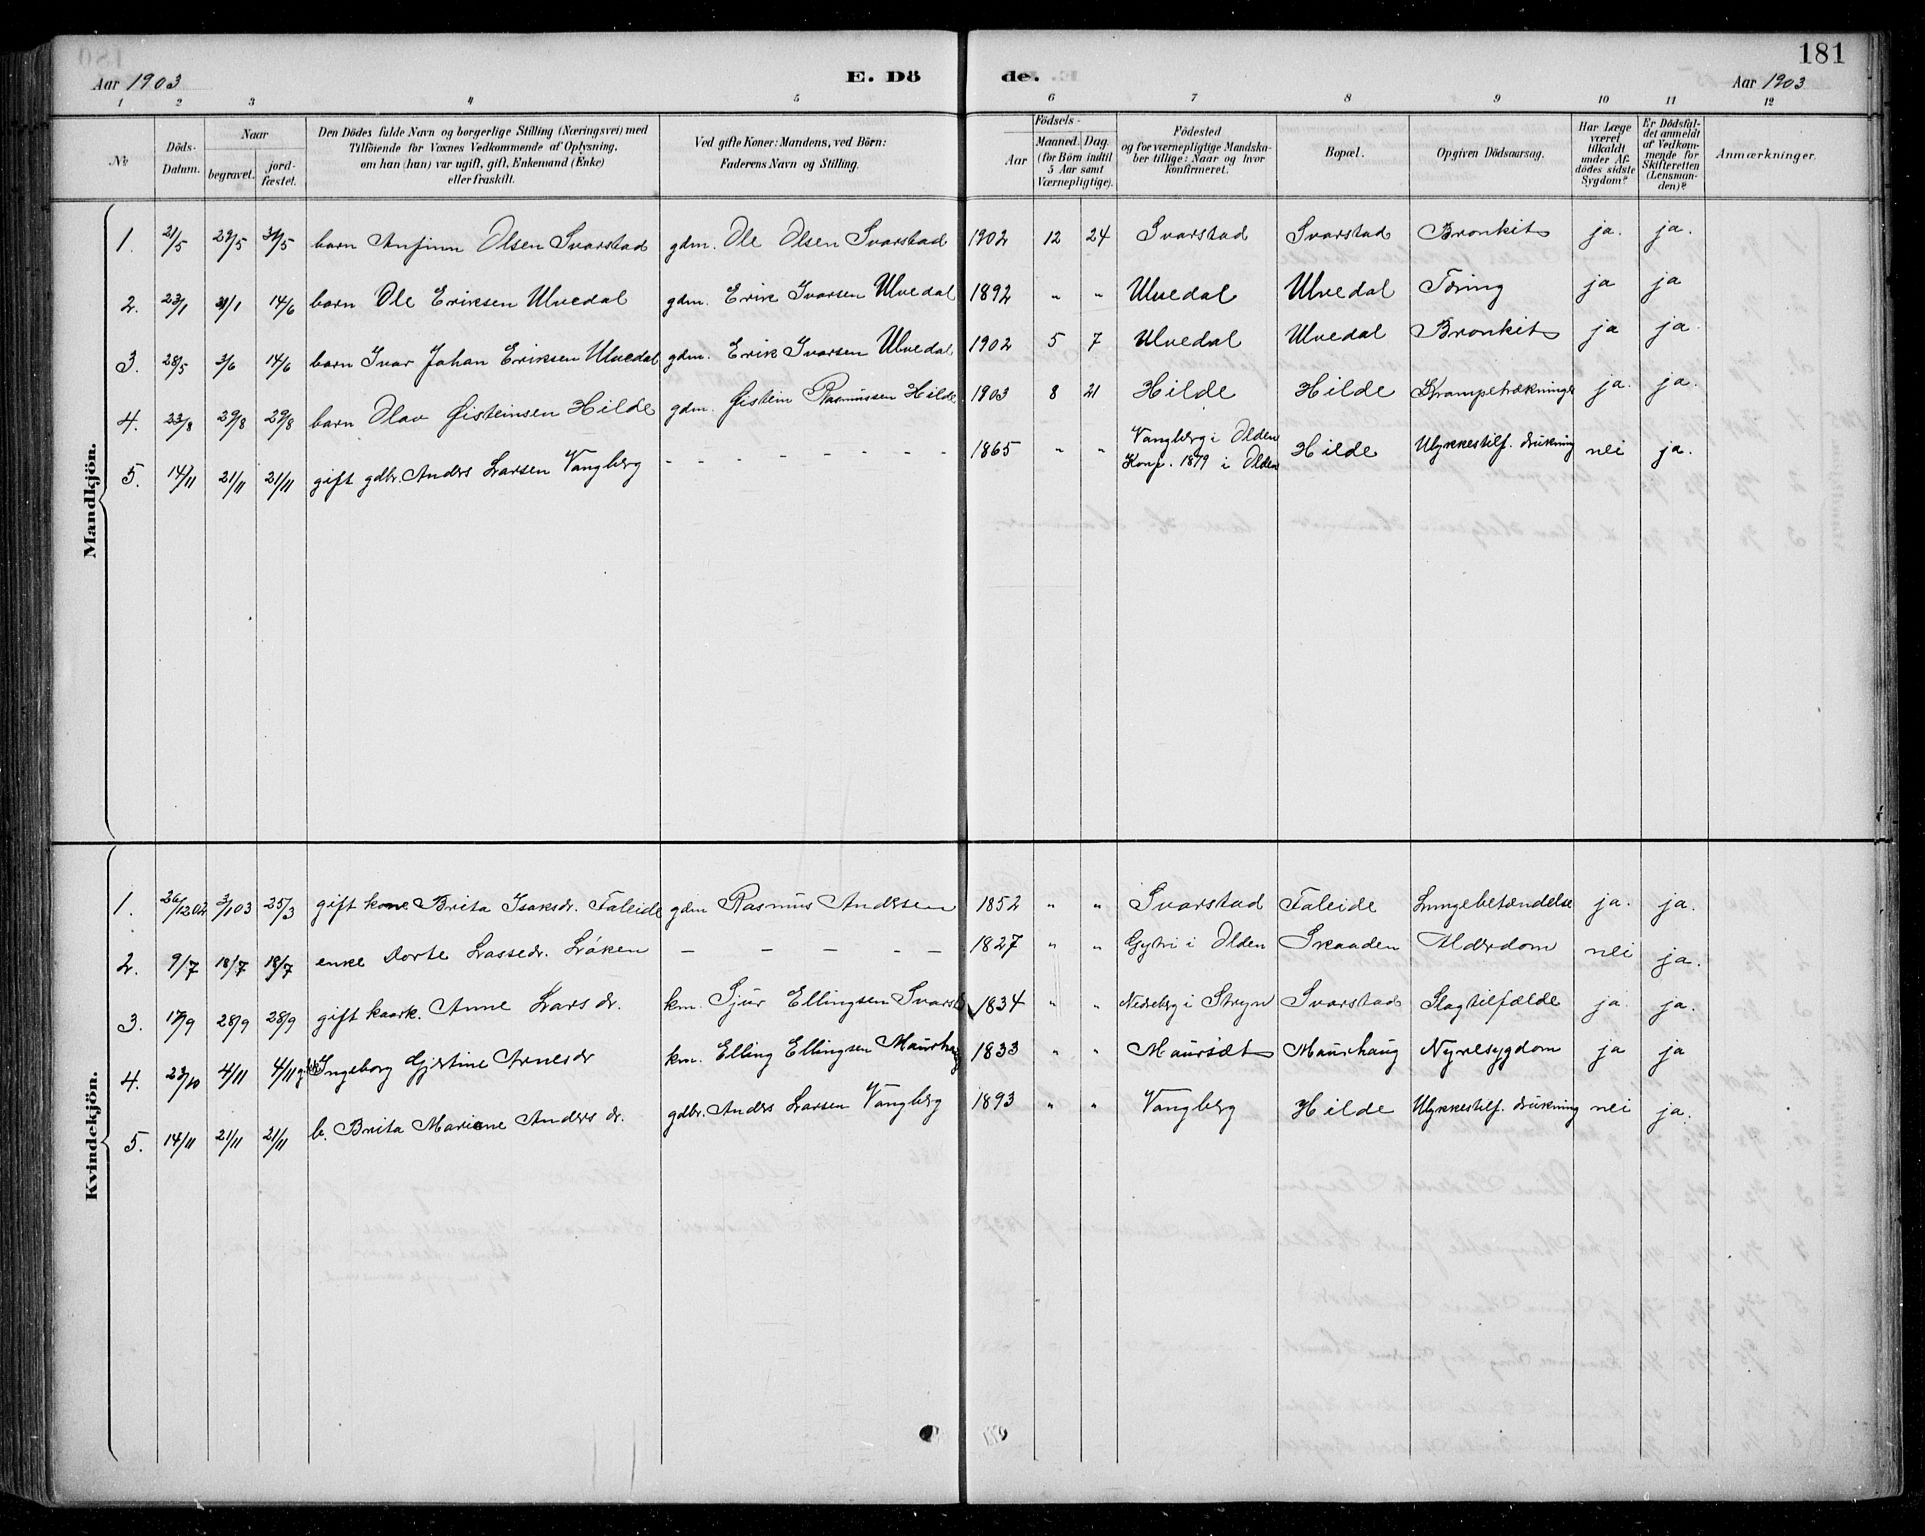 181
Aar 1903
E. Döde.
Aar 1903
1 2 3 4 5 6 7 8 9 10 11 12
No
Döds-Datum.
Naar
begravet.
jord-fæstet.
Den Dödes fulde Navn og borgerlige Stilling (Næringsvei) med
Tilföiende for Voxnes Vedkommende af Oplysning,
om han (hun) var ugift, gift, Enkemand (Enke)
eller fraskilt.
Ved gifte Koner: Mandens, ved Börn:
Faderens Navn og Stilling.
Födsels-
Aar
Maaned. Dag.
(for Börn indtil
5 Aar samt
Værnepligtige).
Födested
og for værnepligtige Mandska-
ber tillige: Naar og hvor
konfirmeret.
Bopæl.
Opgiven Dödsaarsag.
Har Læge
været
tilkaldt
under Af-
dödes sidste
Sygdom?
Er Dödsfal-
det anmeldt
af Vedkom-
mende for
Skifteretten
(Lensman-
den)?
Anmærkninger.
Mandkjön.
1. 21/5 29/5 31/5 barn Anfinn Olsen Svarstad gdm. Ole Olsen Svarstad 1902 12 24 Svarstad Svarstad Bronkit ja. ja.
2. 23/1 31/1 14/6 barn Ole Eriksen Ulvedal gdm. Erik Ivarsen Ulvedal 1892 " " Ulvedal Ulvedal Tæring ja ja
3. 28/5 3/6 14/6 barn Ivar Johan Eriksen Ulvedal gdm. Erik Ivarsen Ulvedal 1902 5 7 Ulvedal Ulvedal Bronkit ja ja.
4. 23/8 29/8 29/8 barn Olav Øisteinsen Hilde gdm. Øistein Rasmussen Hilde 1903 8 21 Hilde Hilde Krampetrækninger ja. ja.
5. 14/11 21/11 21/11 gift gdbr. Anders Larsen Vangberg - - - - - - - - 1865 " " Vangberg i Olden Konf. 1879 i Olden Hilde Ulykkestilf. drukning nei ja.
Kvindekjön.
1. 26/12 02 3/1 03 25/3 gift kone Brita Isaksdr. Faleide gdm Rasmus Andersen 1852 " " Svarstad Faleide Lungebetændelse ja. ja.
2. 9/7 18/7 18/7 enke Dorte Lassedr. Løken - - - - - 1827 " " Gytri i Olden Skaaden Alderdom nei ja.
3. 17/9 28/9 28/9 gift kaark. Anne Larsdr. km. Sjur Ellingsen Svarst 1834 " " Nedreberg i Stryn Svarstad Slagtilfælde ja ja.
4. 23/10 4/11 4/11 Ingeborg Gjertine Arnesdr km. Elling Ellingsen Maurhaug 1833 " " Maurset Maurhaug Nyresygdom ja ja
5. 14/11 21/11 21/11 b. Brita Mariane Andersdr. gdbr. Anders Larsen Vangberg 1893 " " Vangberg Hilde Ulykkestilf. drukning nei ja.